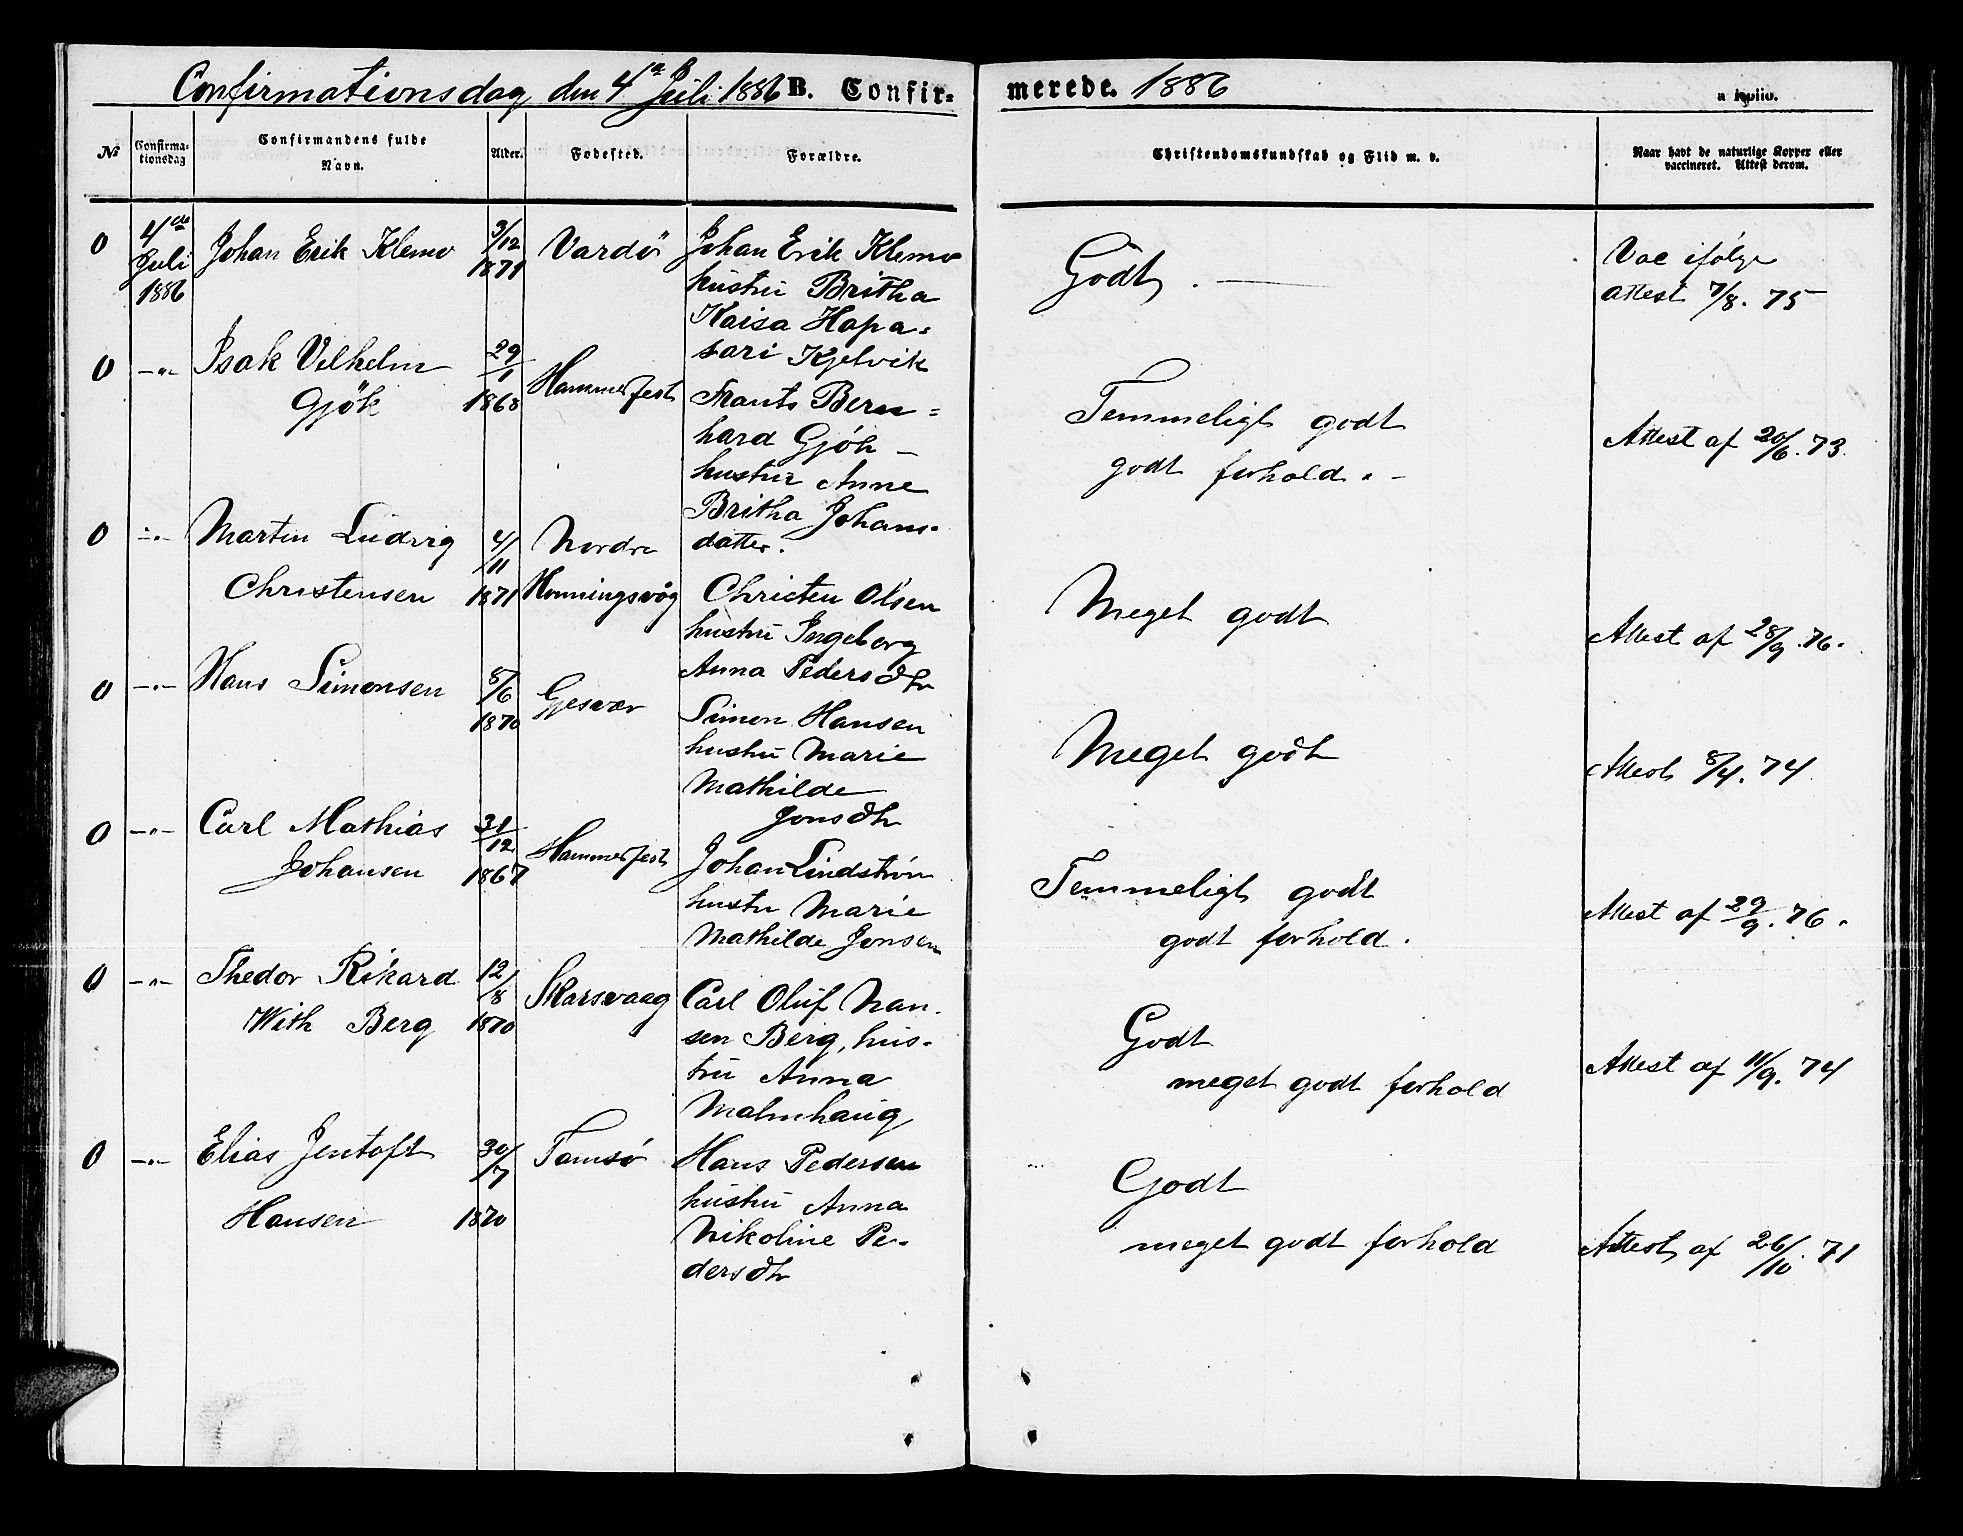 Confirmationsdag den 4de Juli 1886 B. Confir=
merede. 1886
No
Confirma-
tionsdag
Confirmandens fulde
Navn.
Alder.
Fødested.
Forældre.
Christendomskundskab og Flid m. v.
Naar havt de naturlige Kopper eller
vaccineret. Attest derom.
0 4de Johan Erik Klemo 3/12 Vardö Johan Erik Klemo
Juli 1871 hustru Britha
1886 Kaisa Hapa=
sari Kjelvik
Godt. —
Vac ifølge
attest 7/8. 75
0 —"— Isak Vilhelm 29/1 Hammerfest Frants Bern=
Gjök 1868 hard Gjök —
hustru Anne
Britha Johans-
datter.
Temmeligt godt
godt forhold. —
Attest af 20/6. 73.
0 —"— Martin Ludvig 4/11 Nordre Christen Olsen
Christensen 1871 Honningsvåg hustru Ingeborg
Anna Pedersdtr
Meget godt
Attest af 28/9. 76.
0 —"— Hans Simonsen 8/6 Gjesvær Simon Hansen
1870 hustru Marie
Mathilde
Jonsdtr
Meget godt
Attest 8/4. 74.
0 —"— Carl Mathias 31/12 Hammerfest Johan Lindström
Johansen 1867 hustru Marie
Mathilde Jonsen
Temmeligt godt
godt forhold.
Attest af 29/9. 76.
0 —"— Thedor Rikard 12/8 Skarsvaag Carl Oluf Nan-
With Berg 1870 sen Berg, hus-
tru Anna
Malmhaug
Godt
meget godt forhold
Attest af 11/9. 74
0 —"— Elias Jentoft 30/7 Tamsø Hans Pedersen
Hansen 1870 hustru Anna
Nikoline Pe-
dersdtr
Godt
meget godt forhold
Attest af 26/10. 71